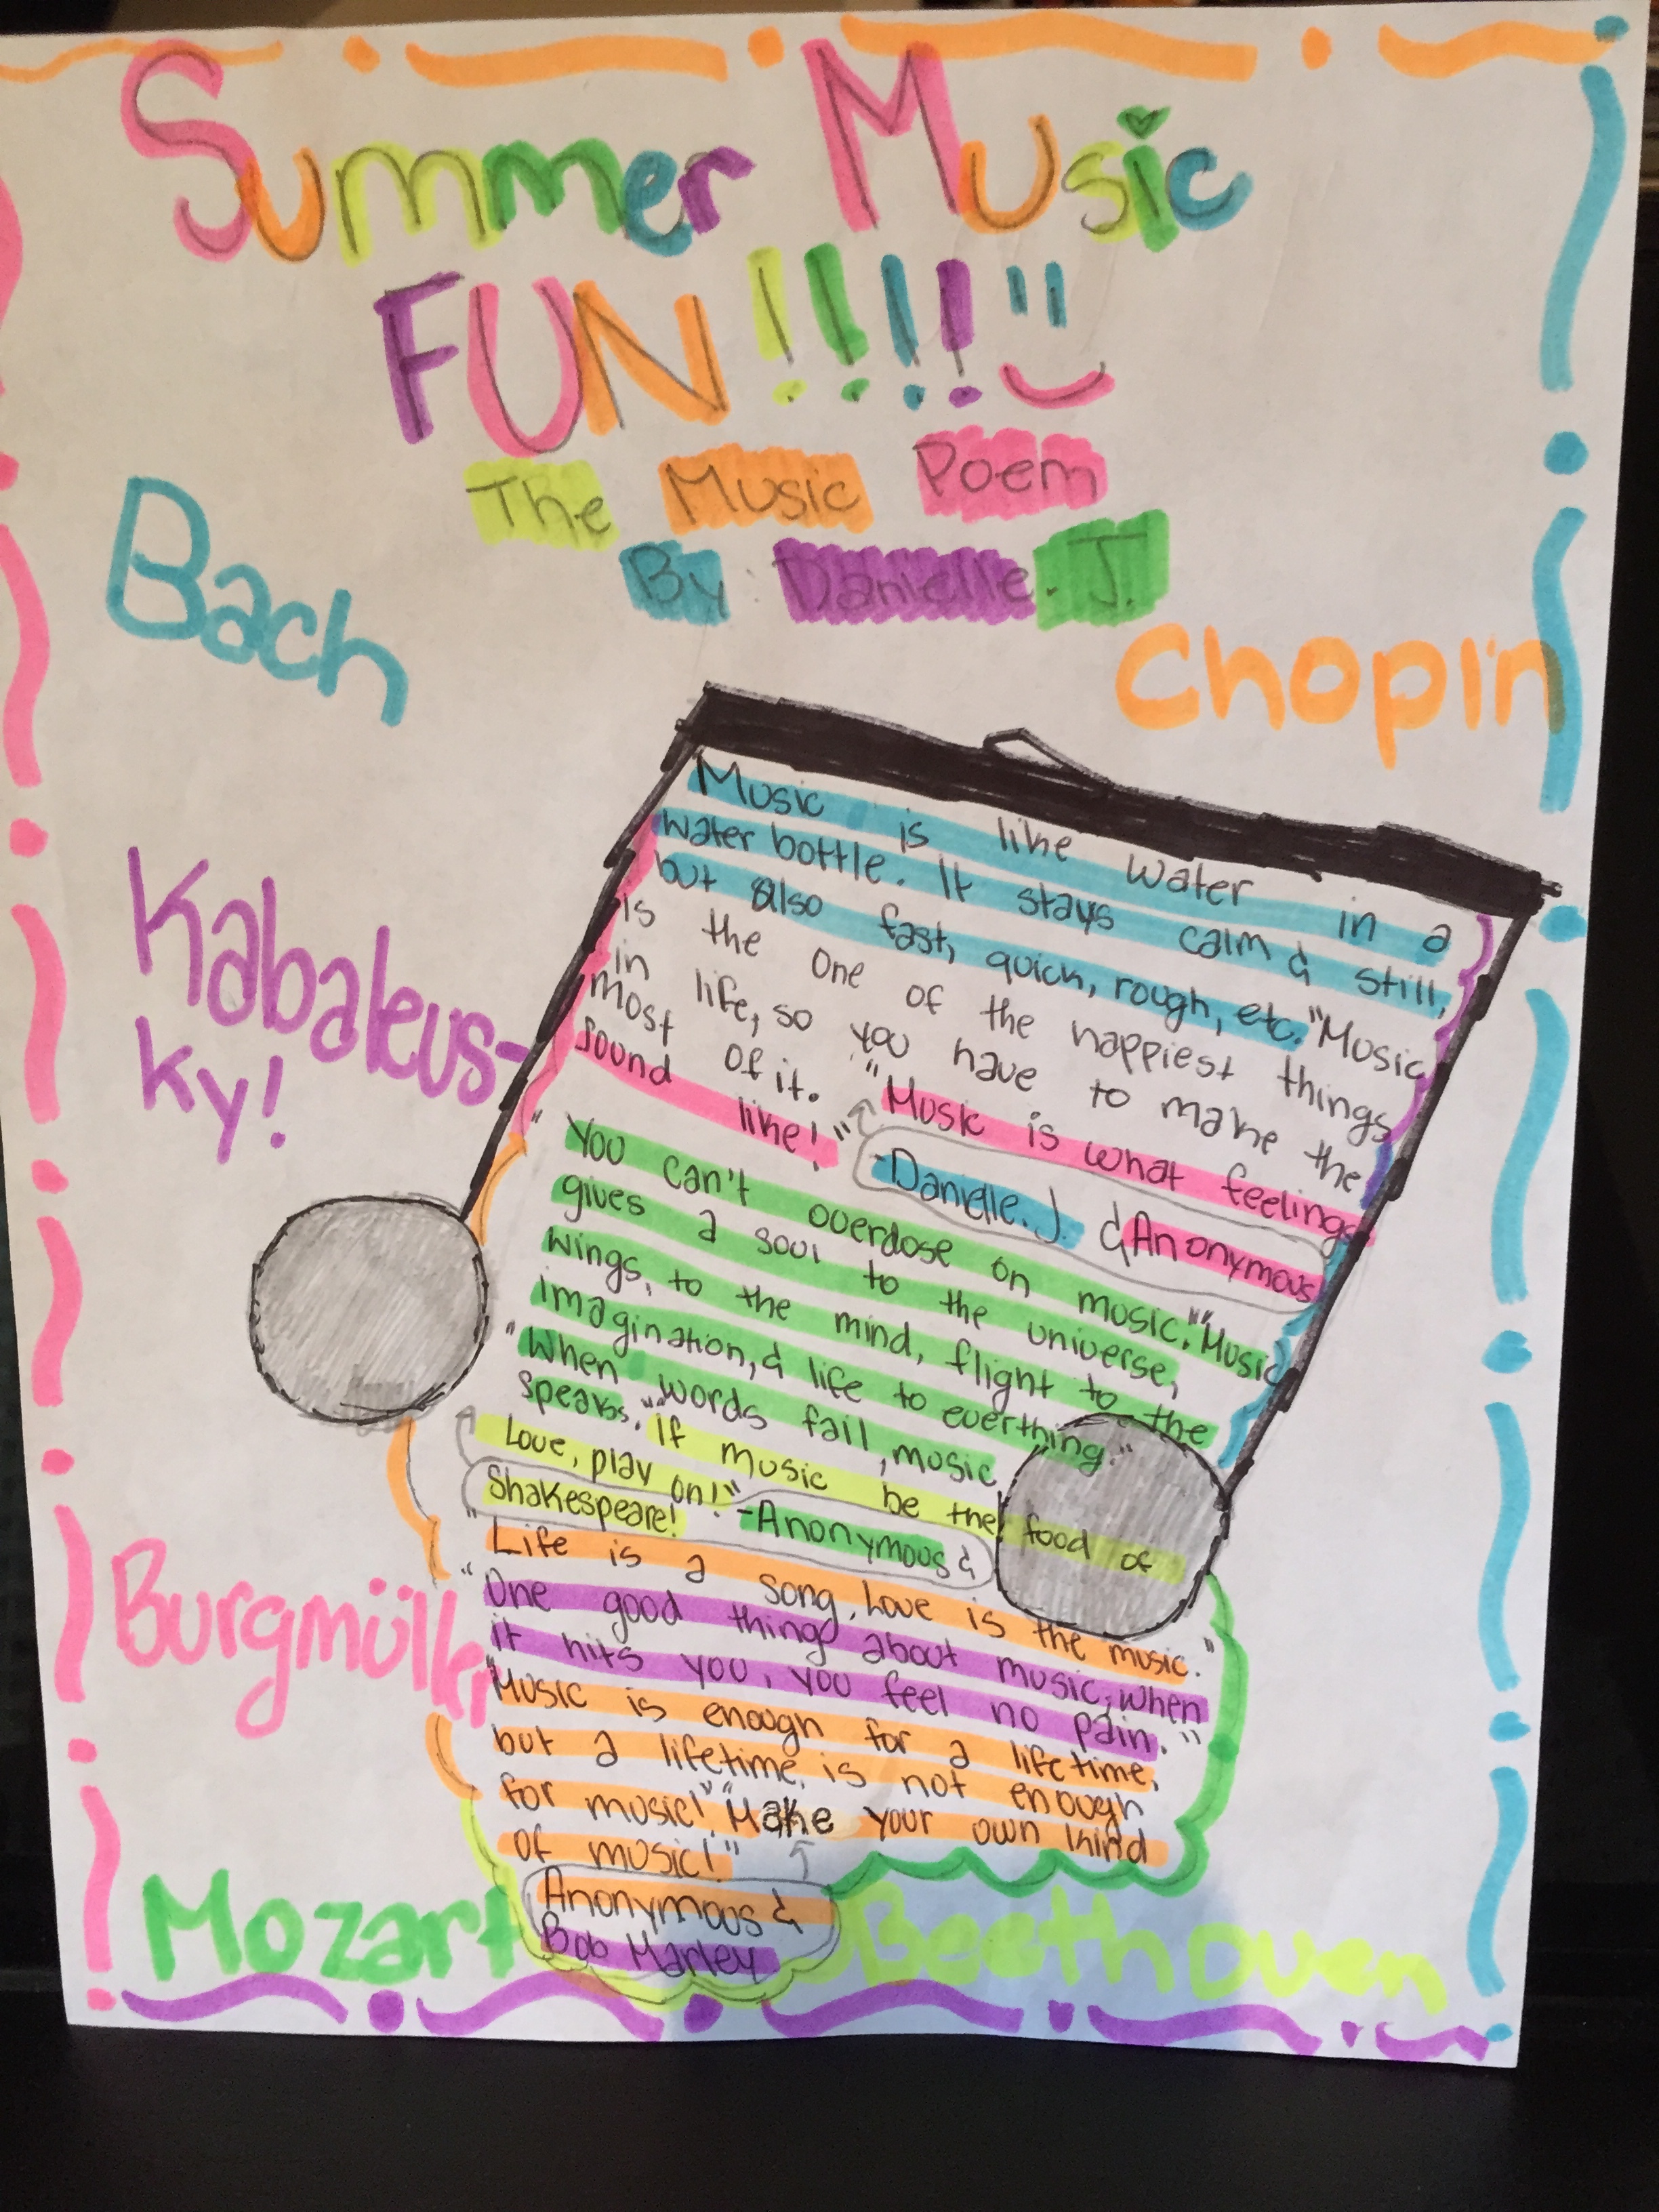 Summer Music
FUN!!!!
The Music Poem
By: Danielle. J.
Bach
Chopin
Kabaleus-
ky!
Music is like water in a
water bottle. It stays calm & still,
but also fast, quick, rough, etc. "Music
is the one of the happiest things
in life, so you have to make the
most of it. "Music is what feelings
sound like!"
-Danielle. J. & Anonymous
"You can't overdose on music.""Music
gives a soul to the universe,
wings, to the mind, flight to the
imagination, & life to everthing."
"When words fail, music
speaks.""If music be the food of
Love, play on!" -Anonymous &
Shakespeare!
"Life is a song, Love is the music."
"One good thing about music, when
it hits you, you feel no pain."
"Music is enough for a lifetime,
but a lifetime, is not enough
for music!""Make your own kind
of music!"
Anonymous &
Bob Marley
Burgmüller
Mozart
Beethoven